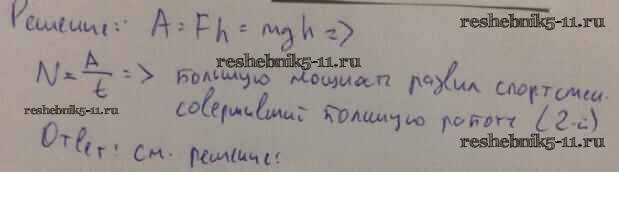 Решение: A = Fh = mgh =>
reshebnik5-11.ru
reshebnik5-11.ru
N = A/t => большую мощность развил спортсмен.
reshebnik5-11.ru
совершивший большую работу (2-й)
reshebnik5-11.ru
Ответ: см. решение:
reshebnik5-11.ru